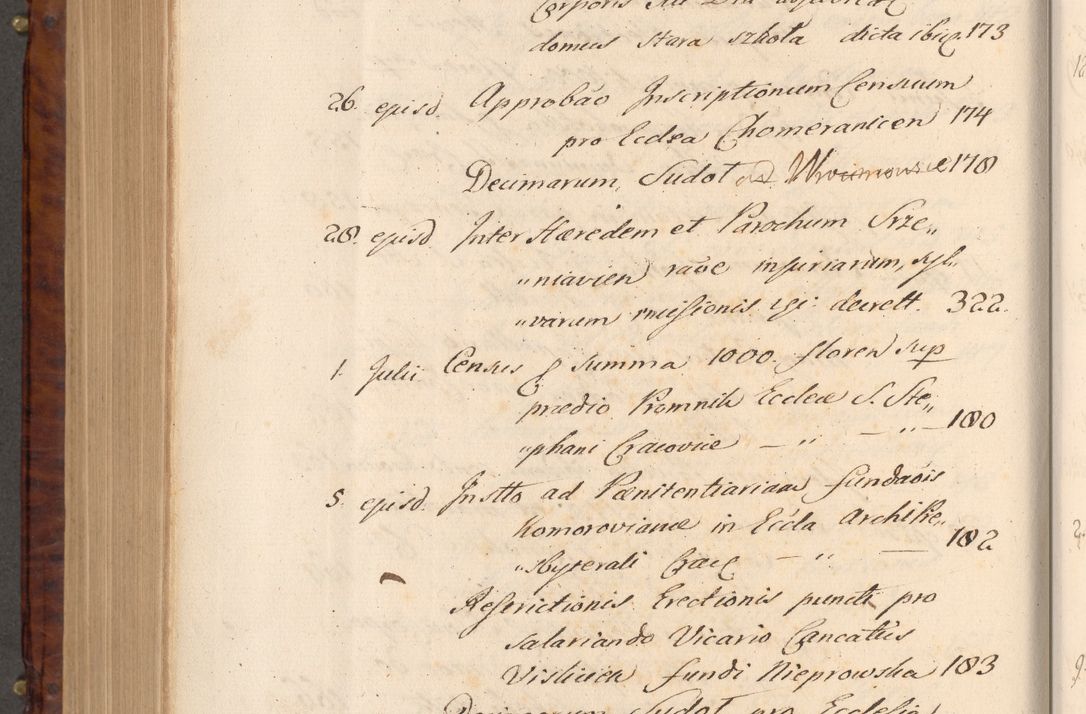 domus stara szkoła dicta ibid. 173
26. ejusd. Approbão Inscriptionum Censuum
pro Ecclea Chomeranicen 174
Decimarum Sudoł 178
28. ejusd Inter Hæredem et Parochum Srze„
„niavien raõe injuriarum, syl„
„varum missionis decrett. 322.
1. Julii Census summa 1000. floren sup
prædio Promnik Eccleæ S. Ste„
„phani Cracoviæ — „ — „ — 180
5. ejusd. Instto ad Pœnitentiariam fundaõis
Komorovianæ in Eccla Archipre„
„sbyterali — „ — 182
Restrictionis Erectionis puncti pro
salariando Vicario Cancatus
Vislicien fundi Nieprowska 183
Decimarum Sudoł pro Ecclesia